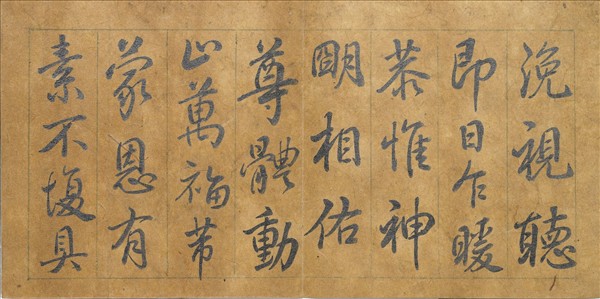 浼視聽
即日乍暖
恭惟神
明相佑
尊體動
止萬福芾
蒙恩有
素不復具